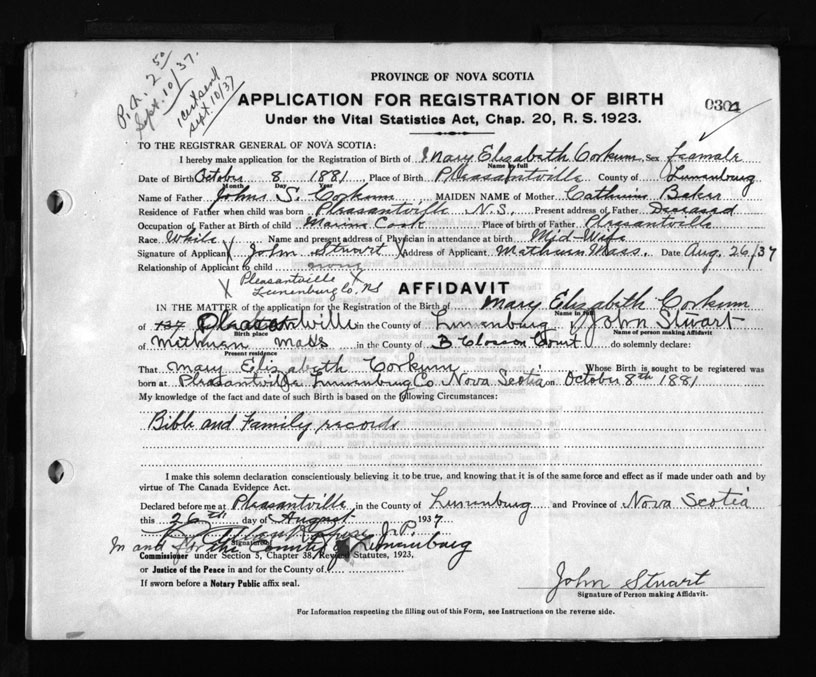 P.N. 2 50
Sept. 10/37.
1 cert sent
Sept. 10/37
PROVINCE OF NOVA SCOTIA
APPLICATION FOR REGISTRATION OF BIRTH
Under the Vital Statistics Act, Chap. 20, R. S. 1923.
TO THE REGISTRAR GENERAL OF NOVA SCOTIA:
I hereby make application for the Registration of Birth of Mary Elizabeth Corkum Sex female
Name in full
Date of Birth October 8 1881 Place of Birth Pleasantville County of Lunenburg
Month Day Year
Name of Father John S. Corkum MAIDEN NAME of Mother Baker
Residence of Father when child was born Pleasantville N.S. Present address of Father Deseased
Occupation of Father at Birth of child Cook Place of birth of Father Pleasantville
Race White Name and present address of Physician in attendance at birth Mid-Wife
Signature of Applicant X John Stuart X Address of Applicant Methuen Mass. Date Aug. 26/37
Relationship of Applicant to child
X Pleasantville X
Lunenburg Co. NS
AFFIDAVIT
IN THE MATTER of the application for the Registration of the Birth of Mary Elizabeth Corkum
Name in full
of Pleasantville in the County of Lunenburg I, John Stuart
Birth place Name of person making Affidavit
of Methuen Mass in the County of Court do solemnly declare:
Present residence
That Mary Elizabeth Corkum Whose Birth is sought to be registered was
born at Pleasantville Lunenburg Co. Nova Scotia on October 8th 1881
My knowledge of the fact and date of such Birth is based on the following Circumstances:
Bible and Family records
I make this solemn declaration conscientiously believing it to be true, and knowing that it is of the same force and effect as if made under oath and by
virtue of The Canada Evidence Act.
Declared before me at Pleasantville in the County of Lunenburg and Province of Nova Scotia
this 26th day of August 1937
J.P.
Signature
In and for the County of Lunenburg
Commissioner under Section 5, Chapter 38, Revised Statutes, 1923,
or Justice of the Peace in and for the County of
If sworn before a Notary Public affix seal.
John Stuart
Signature of Person making Affidavit.
For Information respecting the filling out of this Form, see Instructions on the reverse side.